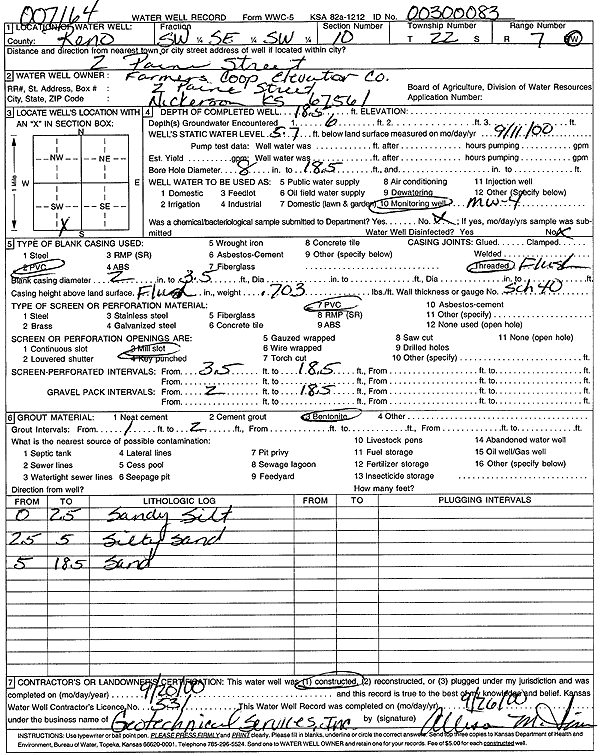 007164 WATER WELL RECORD Form WWC-5 KSA 82a-1212 ID No. 00300083
1 LOCATION OF WATER WELL: Fraction Section Number Township Number Range Number
County: Reno SW ¼ SE ¼ SW ¼ 10 T 22 S R 7 E/W
Distance and direction from nearest town or city street address of well if located within city?
2 Paine Street
2 WATER WELL OWNER: Farmers Coop Elevator Co.
RR#, St. Address, Box # : 2 Paine Street Board of Agriculture, Division of Water Resources
City, State, ZIP Code : Nickerson KS 67561 Application Number:
3 LOCATE WELL'S LOCATION WITH AN "X" IN SECTION BOX:
N
NW NE
W E
SW SE
X
S
1 Mile
4 DEPTH OF COMPLETED WELL 18.5 ft. ELEVATION:
Depth(s) Groundwater Encountered 1. 6 ft. 2. ft. 3. ft.
WELL'S STATIC WATER LEVEL 5.7 ft. below land surface measured on mo/day/yr 9/11/00
Pump test data: Well water was ft. after hours pumping gpm
Est. Yield gpm: Well water was ft. after hours pumping gpm
Bore Hole Diameter 8 in. to 18.5 ft., and in. to ft.
WELL WATER TO BE USED AS: 5 Public water supply 8 Air conditioning 11 Injection well
1 Domestic 3 Feedlot 6 Oil field water supply 9 Dewatering 12 Other (Specify below)
2 Irrigation 4 Industrial 7 Domestic (lawn & garden) 10 Monitoring well MW-4
Was a chemical/bacteriological sample submitted to Department? Yes No X ; If yes, mo/day/yrs sample was submitted Water Well Disinfected? Yes No X
5 TYPE OF BLANK CASING USED: 5 Wrought iron 8 Concrete tile CASING JOINTS: Glued Clamped
1 Steel 3 RMP (SR) 6 Asbestos-Cement 9 Other (specify below) Welded
2 PVC 4 ABS 7 Fiberglass Threaded Flush
Blank casing diameter 2 in. to 3.5 ft., Dia in. to ft., Dia in. to ft.
Casing height above land surface Flush in., weight .703 lbs./ft. Wall thickness or gauge No. Sch 40
TYPE OF SCREEN OR PERFORATION MATERIAL: 7 PVC 10 Asbestos-cement
1 Steel 3 Stainless steel 5 Fiberglass 8 RMP (SR) 11 Other (specify)
2 Brass 4 Galvanized steel 6 Concrete tile 9 ABS 12 None used (open hole)
SCREEN OR PERFORATION OPENINGS ARE: 5 Gauzed wrapped 8 Saw cut 11 None (open hole)
1 Continuous slot 3 Mill slot 6 Wire wrapped 9 Drilled holes
2 Louvered shutter 4 Key punched 7 Torch cut 10 Other (specify) ft.
SCREEN-PERFORATED INTERVALS: From 3.5 ft. to 18.5 ft., From ft. to ft.
From ft. to ft., From ft. to ft.
GRAVEL PACK INTERVALS: From 2 ft. to 18.5 ft., From ft. to ft.
From ft. to ft., From ft. to ft.
6 GROUT MATERIAL: 1 Neat cement 2 Cement grout 3 Bentonite 4 Other
Grout Intervals: From 1 ft. to 2 ft., From ft. to ft., From ft. to ft.
What is the nearest source of possible contamination: 10 Livestock pens 14 Abandoned water well
1 Septic tank 4 Lateral lines 7 Pit privy 11 Fuel storage 15 Oil well/Gas well
2 Sewer lines 5 Cess pool 8 Sewage lagoon 12 Fertilizer storage 16 Other (specify below)
3 Watertight sewer lines 6 Seepage pit 9 Feedyard 13 Insecticide storage
Direction from well? How many feet?
FROM TO LITHOLOGIC LOG FROM TO PLUGGING INTERVALS
0 2.5 Sandy Silt
2.5 5 Silty Sand
5 18.5 Sand
7 CONTRACTOR'S OR LANDOWNER'S CERTIFICATION: This water well was (1) constructed, (2) reconstructed, or (3) plugged under my jurisdiction and was
completed on (mo/day/year) 9/20/00 and this record is true to the best of my knowledge and belief. Kansas
Water Well Contractor's Licence No. 531 This Water Well Record was completed on (mo/day/yr) 9/26/00
under the business name of Geotechnical Services, Inc. by (signature)
INSTRUCTIONS: Use typewriter or ball point pen. PLEASE PRESS FIRMLY and PRINT clearly. Please fill in blanks, underline or circle the correct answers. Send top three copies to Kansas Department of Health and
Environment, Bureau of Water, Topeka, Kansas 66620-0001. Telephone 785-296-5524. Send one to WATER WELL OWNER and retain one for your records. Fee of $5.00 for each constructed well.